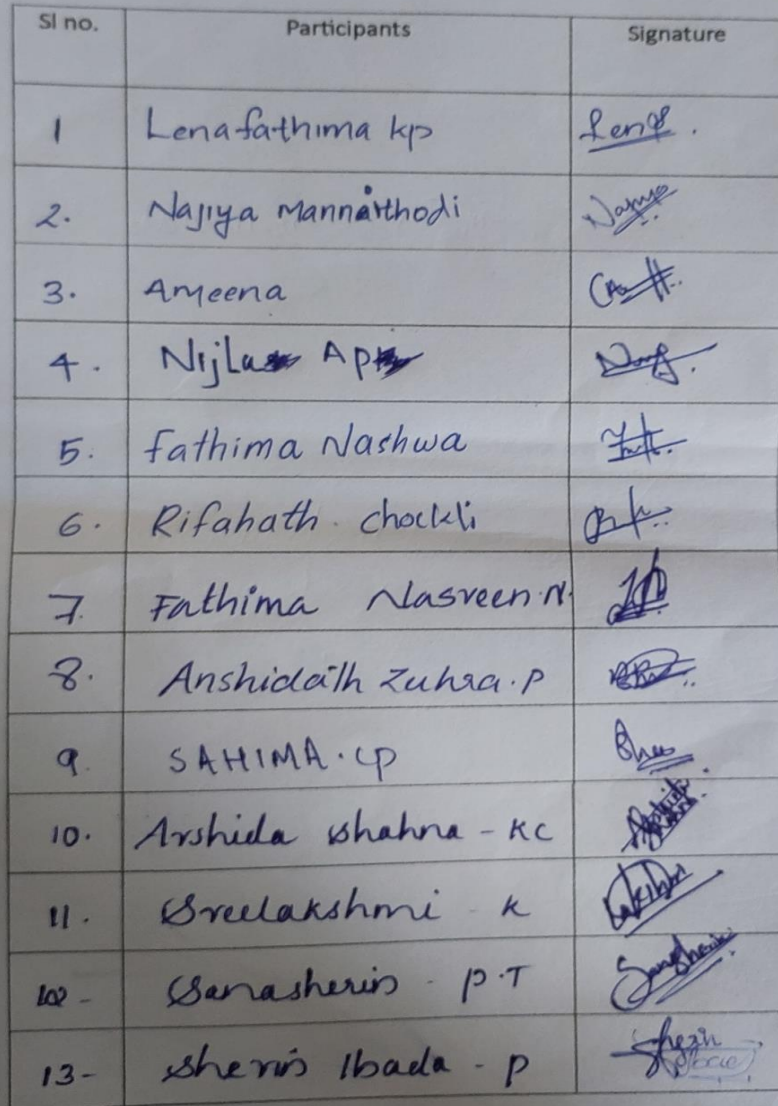 Sl no. Participants Signature
1 Lenafathima kp Lena.
2. Najiya Mannarthodi Najiya
3. Ameena
4. Nijla Ap
5. Fathima Nashwa
6. Rifahath. Chockli
7. Fathima Nasreen.N.
8. Anshidath Zuhra.P
9. SAHIMA.CP
10. Arshida Shahna - KC
11. Sreelakshmi - K
12 - Sanasherin - P.T
13- Sherin Ibada - P Sherin